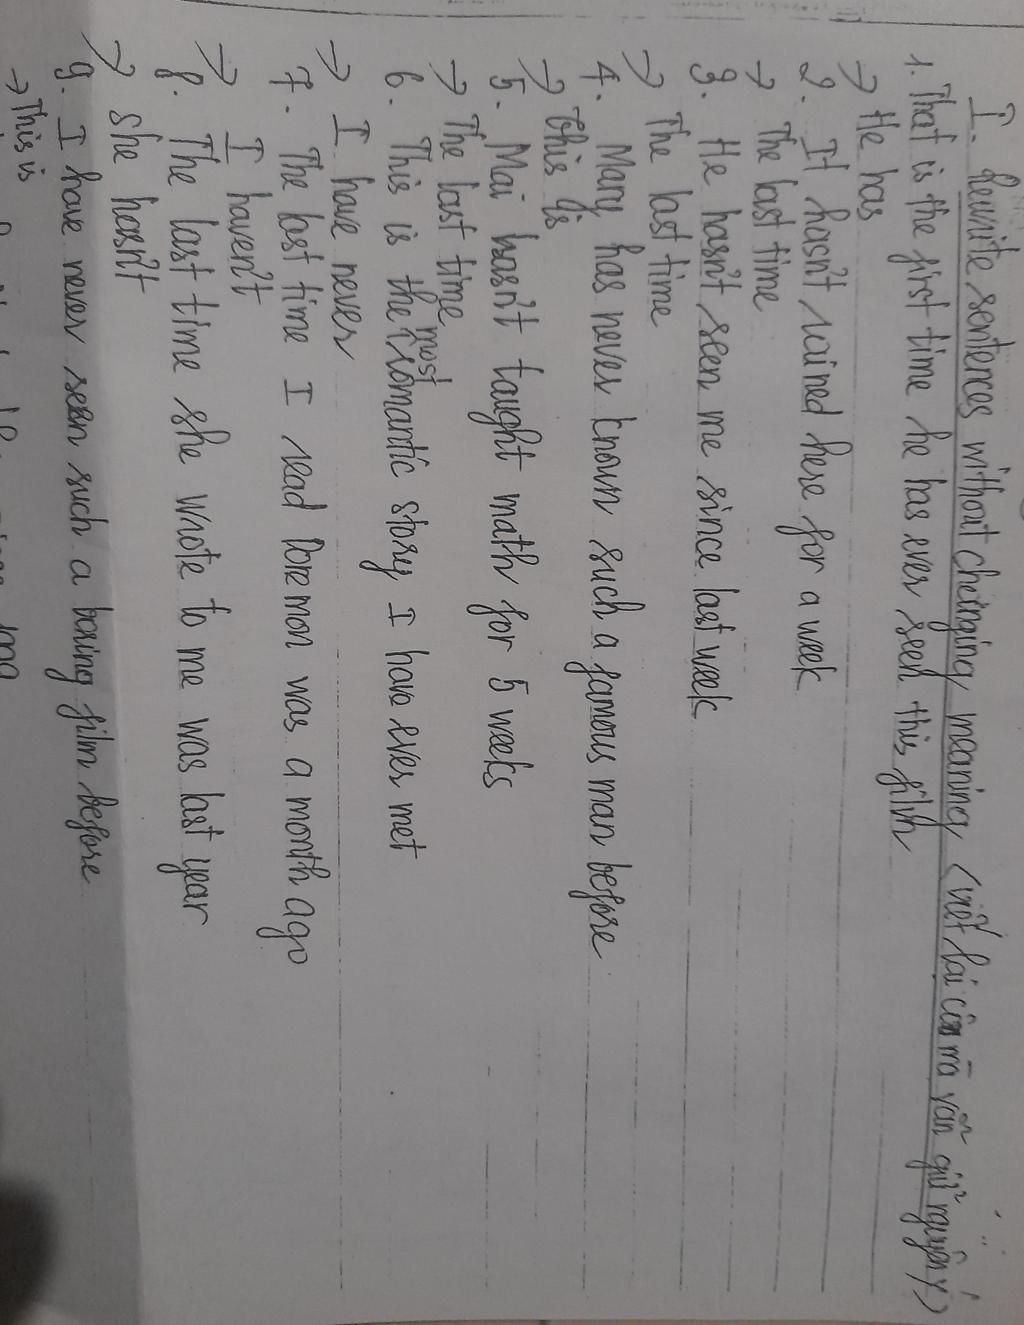 I. Rewrite sentences without chenging meaning (viết lại câu mà vẫn giữ nguyên ý)
1. That is the first time he has ever seen this film
→ He has
2. It hasn't rained here for a week
→ The last time
3. He hasn't seen me since last week
→ The last time
4. Mary has never known such a famous man before
→ This is
5. Mai hasn't taught math for 5 weeks
→ The last time
6. This is the most romantic story I have ever met
→ I have never
7. The last time I read Doremon was a month ago
→ I haven't
8. The last time she wrote to me was last year
→ She hasn't
9. I have never seen such a boring film before
→ This is